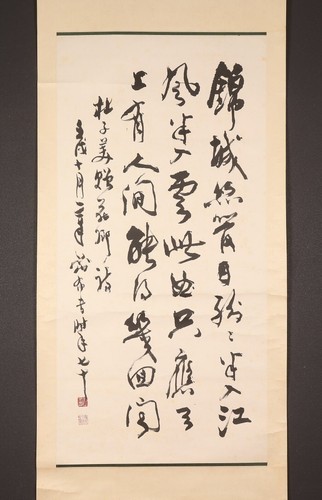 錦城絲管日紛〻半入江
風半入雲此曲只應天
上有人間能得幾回聞
杜子美贈花卿詩
壬戌十月書時年七十